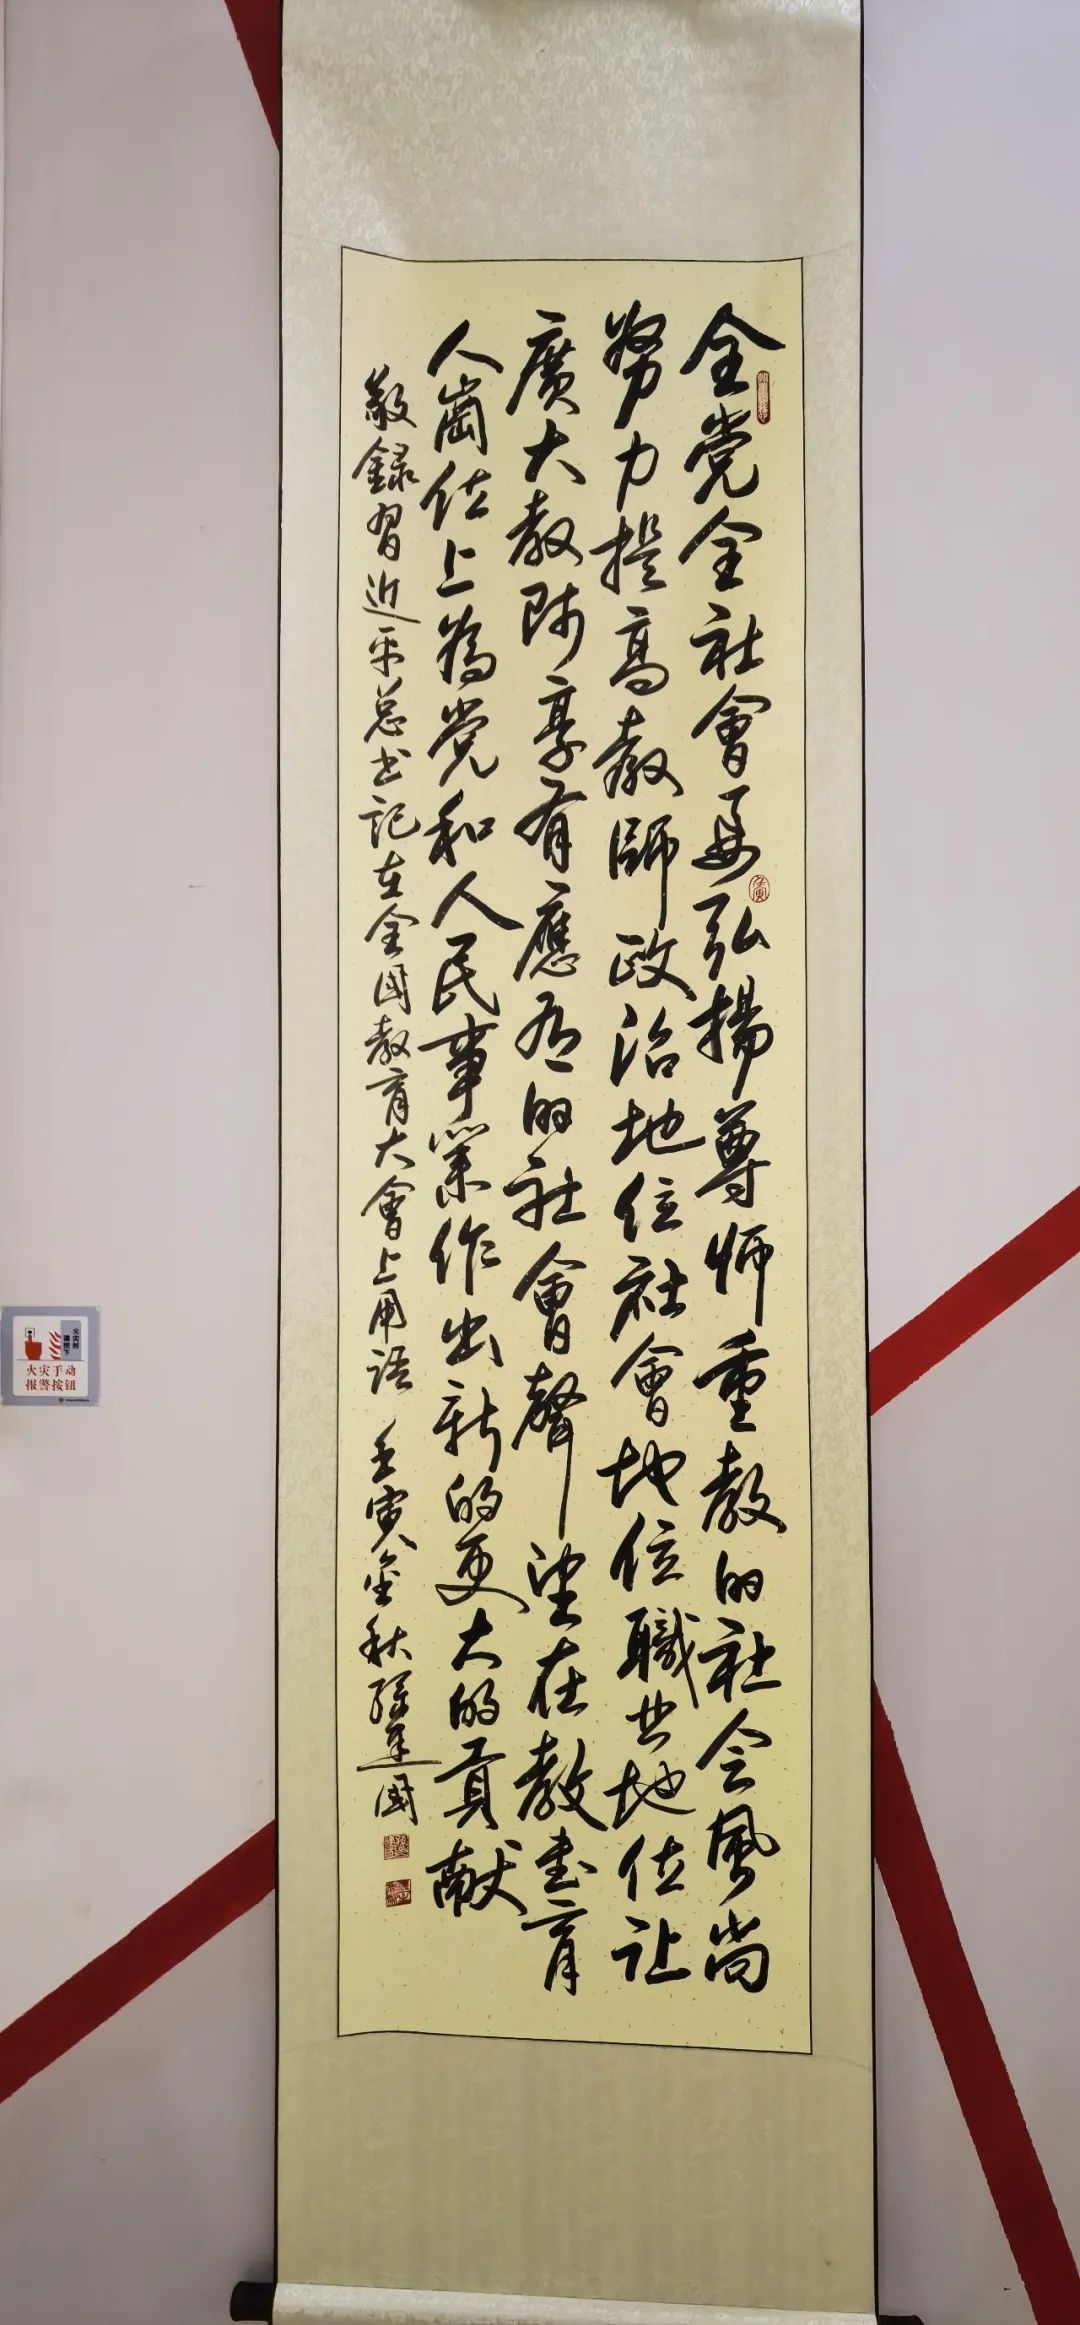 全党全社會要弘揚尊师重教的社会風尚
努力提高教師政治地位社會地位職业地位让
廣大教师享有應有的社會聲望在教書育
人崗位上為党和人民事業作出新的更大的貢献
敬録習近平总书记在全国教育大會上用語 壬寅金秋
壬寅
火灾时
请按下
火灾手动
报警按钮